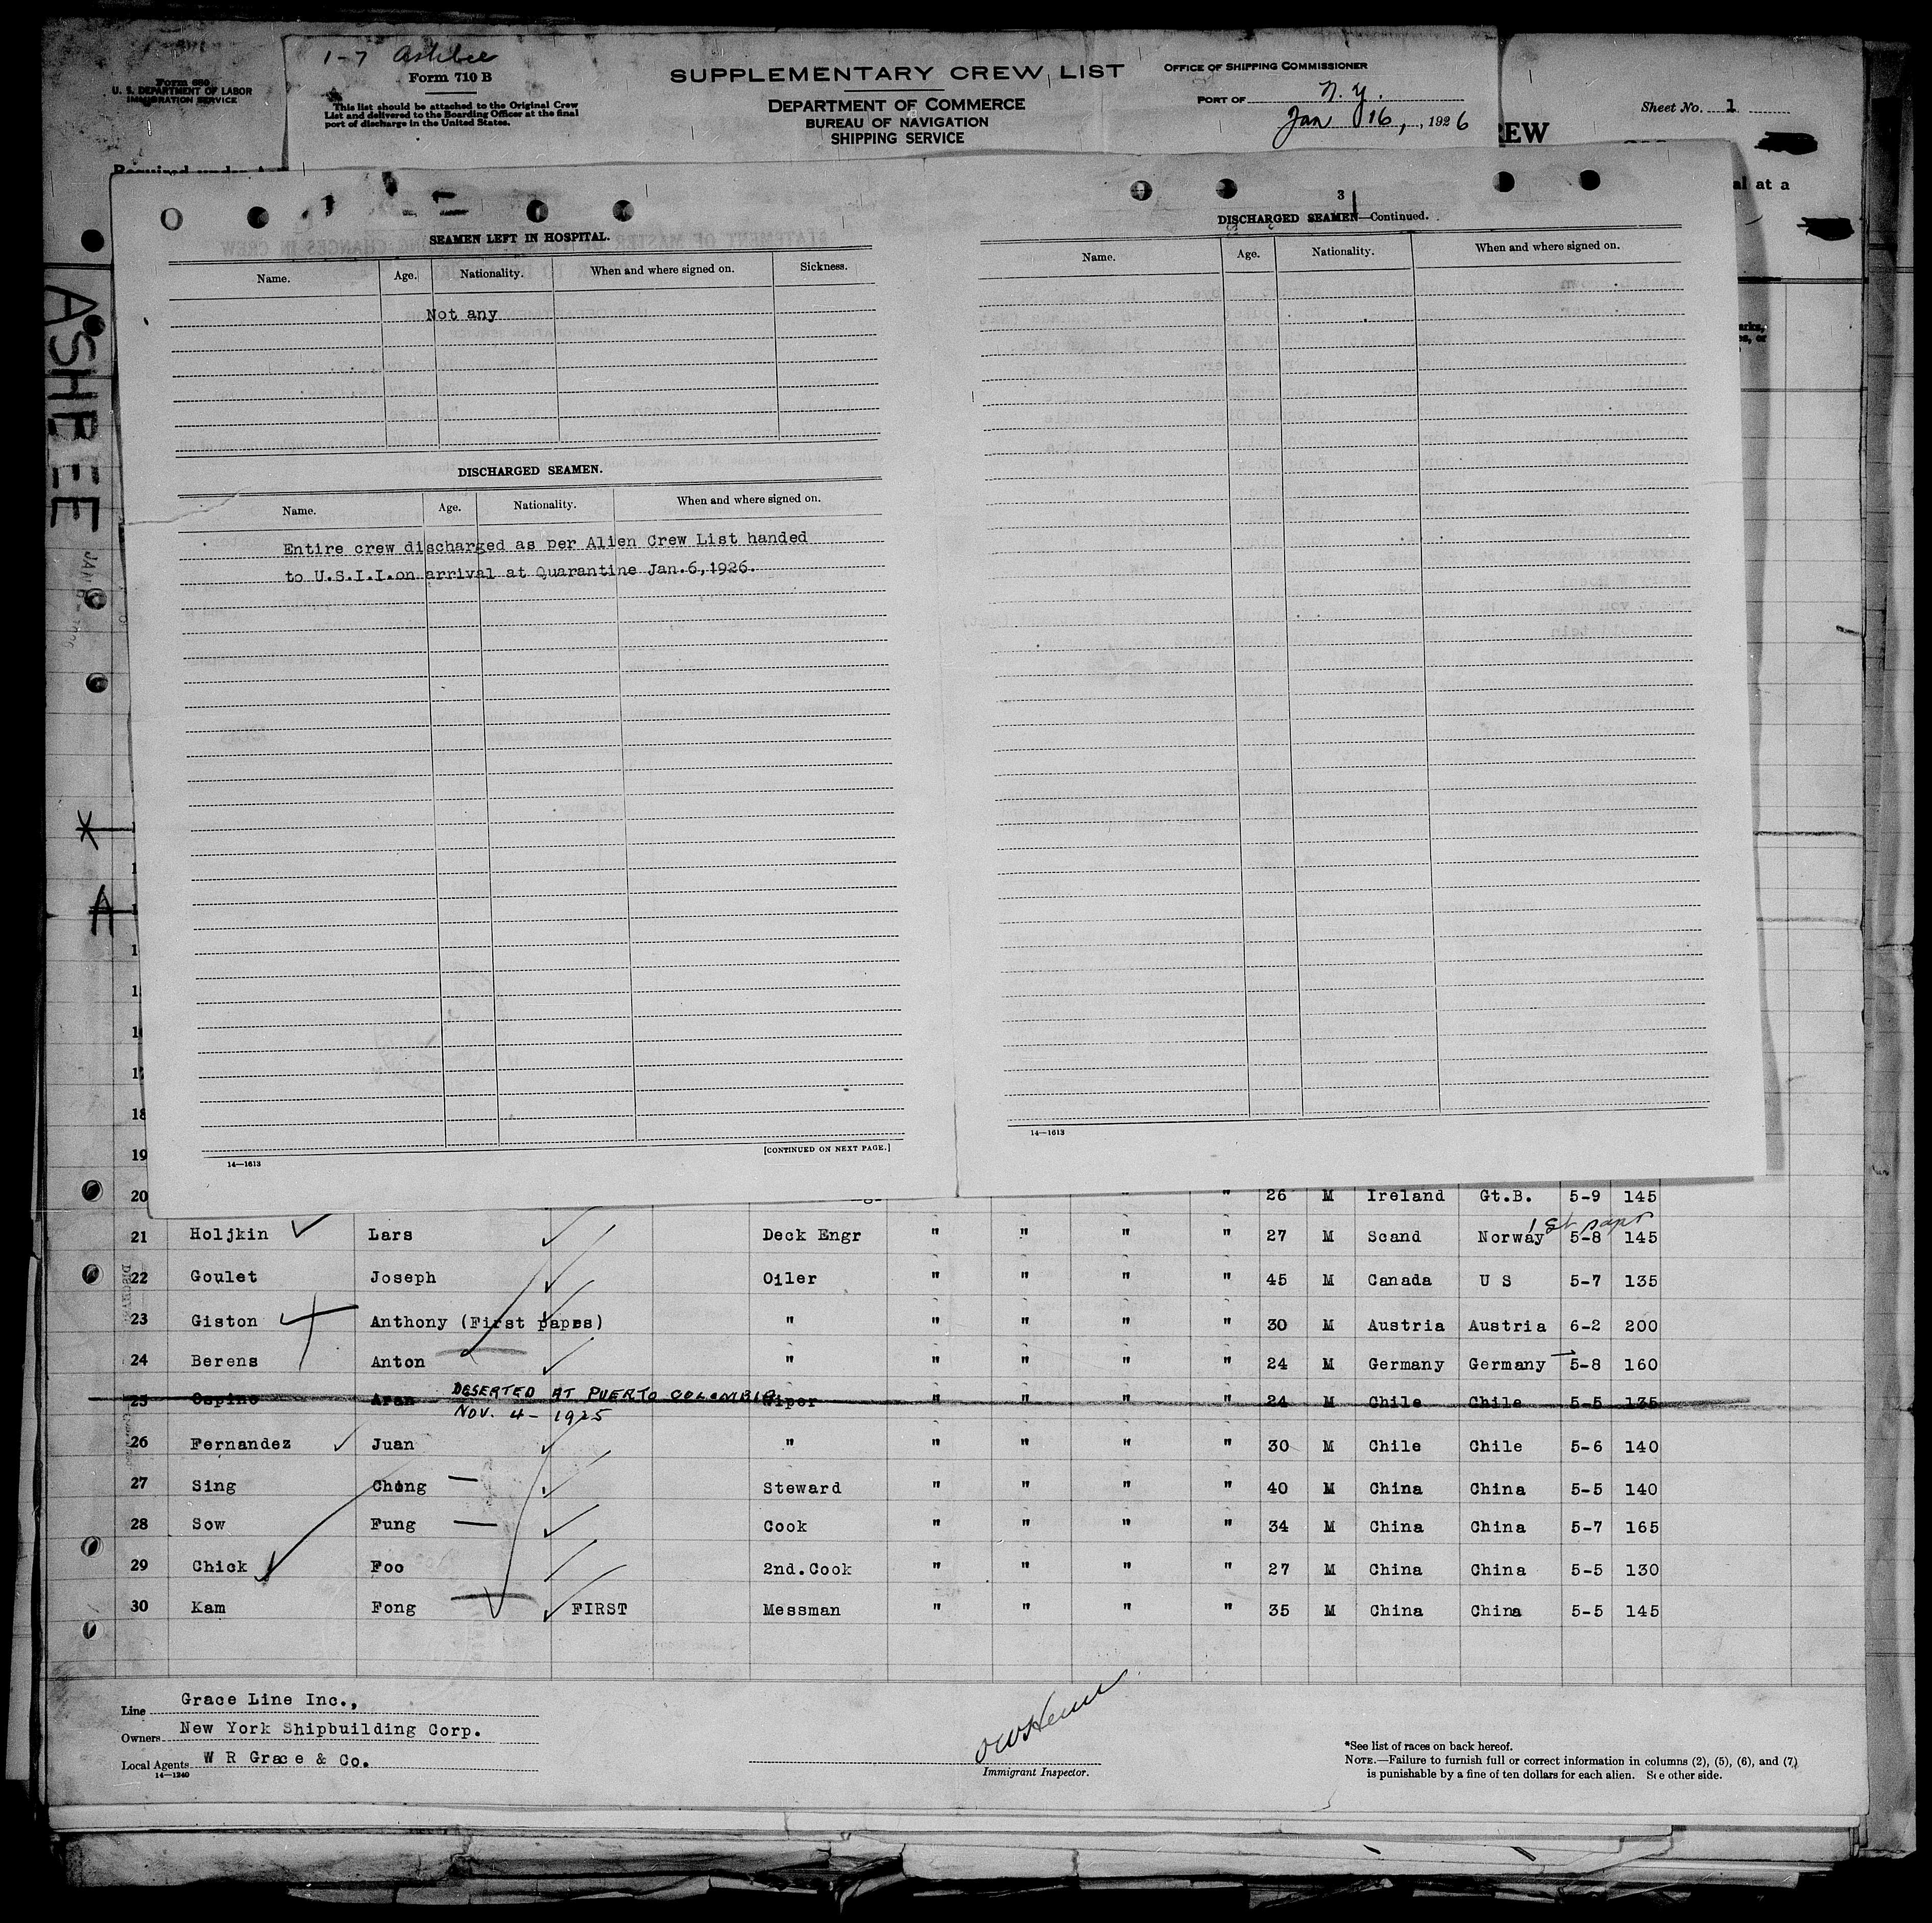 1-7 Ashbee
Form 710 B
This list should be attached to the Original Crew
List and delivered to the Boarding Officer at the final
port of discharge in the United States.
SUPPLEMENTARY CREW LIST
DEPARTMENT OF COMMERCE
BUREAU OF NAVIGATION
SHIPPING SERVICE
OFFICE OF SHIPPING COMMISSIONER
PORT OF N. Y.
Jan 16, 1926
Form 680
U. S. DEPARTMENT OF LABOR
IMMIGRATION SERVICE
Sheet No. 1
EW
Required under A
al at a
arks,
es, or
ASHBEE
SEAMEN LEFT IN HOSPITAL.
Name. Age. Nationality. When and where signed on. Sickness.
Not any
DISCHARGED SEAMEN.
Name. Age. Nationality. When and where signed on.
Entire crew discharged as per Alien Crew List handed
to U.S.I.I.on arrival at Quarantine Jan.6,1926.
14—1613 [CONTINUED ON NEXT PAGE.]
3
DISCHARGED SEAMEN—Continued.
Name. Age. Nationality. When and where signed on.
14—1613
18
19
20 " " 26 M Ireland Gt.B. 5-9 145
1st papr
21 Holjkin Lars Deck Engr " " " " 27 M Scand Norway 5-8 145
22 Goulet Joseph Oiler " " " " 45 M Canada U S 5-7 135
23 Giston Anthony (First papes) " " " " " 30 M Austria Austria 6-2 200
24 Berens Anton " " " " " 24 M Germany Germany 5-8 160
DESERTED AT PUERTO COLOMBIA
25 Ospino Aran Wiper " " " " 24 M Chile Chile 5-5 135
NOV. 4- 1925
26 Fernandez Juan " " " " " 30 M Chile Chile 5-6 140
27 Sing Chong Steward " " " " 40 M China China 5-5 140
28 Sow Fung Cook " " " " 34 M China China 5-7 165
29 Chick Foo 2nd.Cook " " " " 27 M China China 5-5 130
30 Kam Fong FIRST Messman " " " " 35 M China China 5-5 145
Line Grace Line Inc.,
Owners New York Shipbuilding Corp.
Local Agents W R Grace & Co.
14—1240
Immigrant Inspector.
*See list of races on back hereof.
NOTE.—Failure to furnish full or correct information in columns (2), (5), (6), and (7)
is punishable by a fine of ten dollars for each alien. See other side.